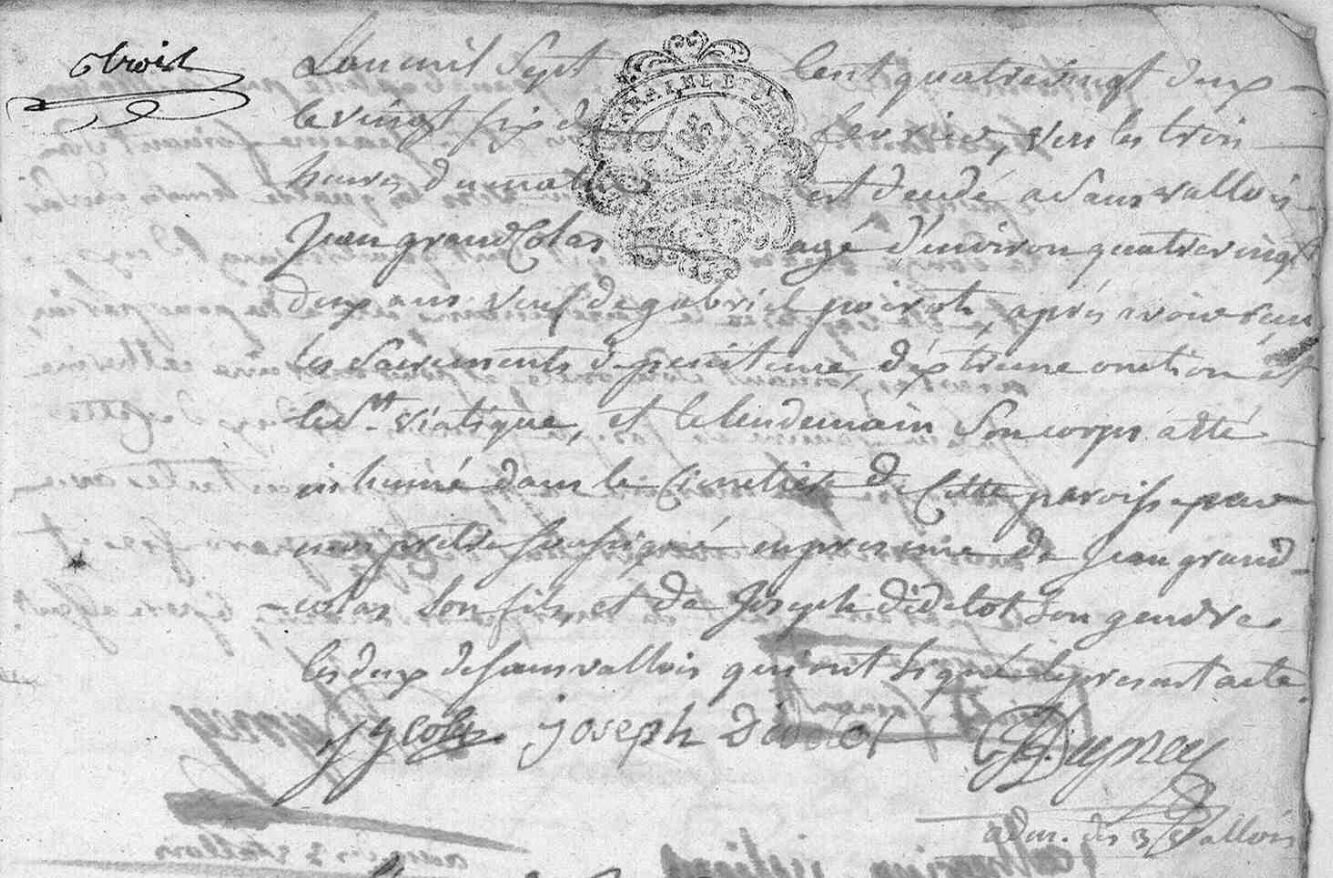 trois
L'an mil Sept Cent quatrevingt deux
le vingt six de fevrier, vers les trois
heures du matin est decedé a Sansvallois
Jean grand Colas agé d'environ quatrevingt
deux ans veuf de gabriel poirot, après avoir reçu
les Sacrements de penitence, d'extreme onction et
le St. viatique, et le lendemain Son corps a été
inhumé dans le Cimetière de Cette paroisse par
nous prêtre soussigné en presence de Jean grand
colas Son fils, et de Joseph Didelot Son gendre
les deux de Sansvallois qui ont Signé le present acte.
J gcolas joseph Didelot
adm. des 3 Vallois